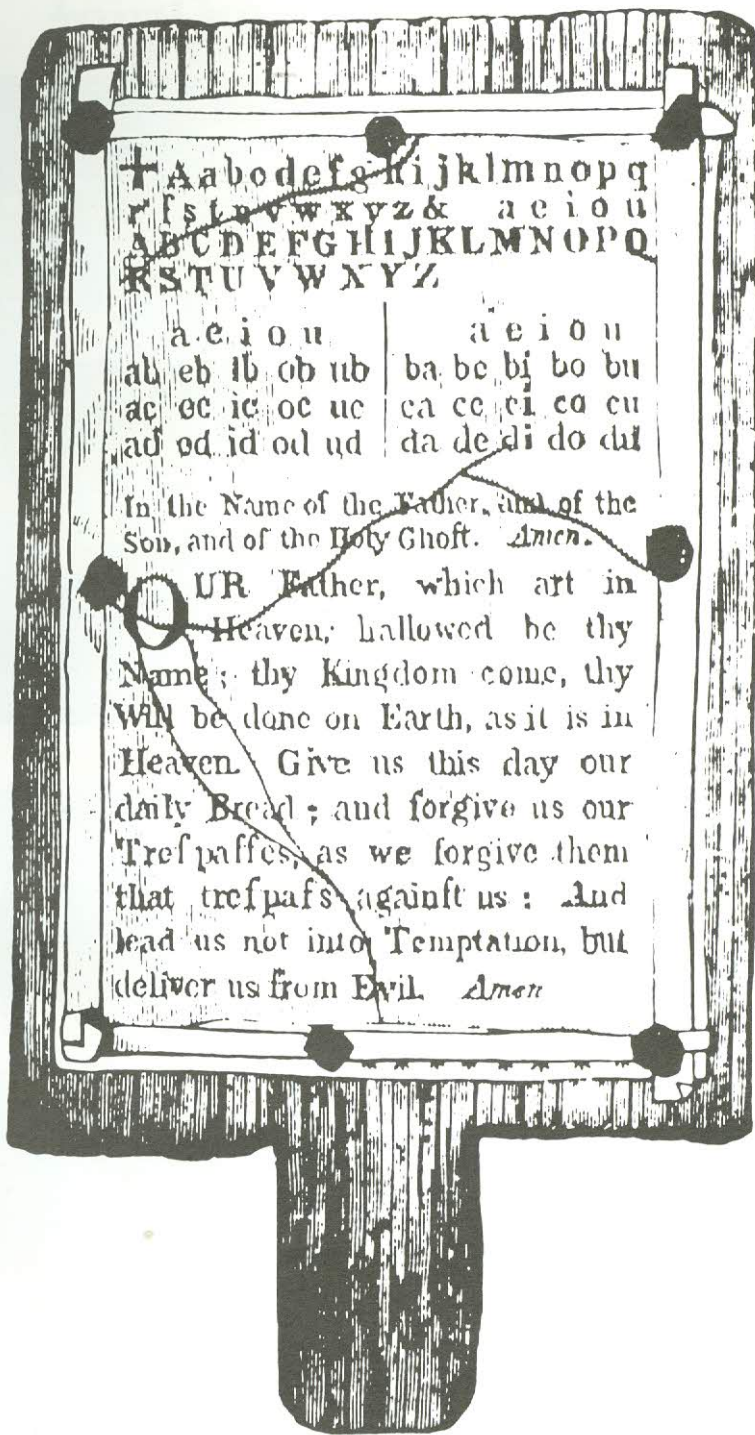 ✝Aabcdefghijklmnopq
rſstuvwxyz& aeiou
ABCDEFGHIJKLMNOPQ
RSTUVWXYZ
a e i o u | a e i o u
ab eb ib ob ub | ba be bi bo bu
ac ec ic oc uc | ca ce ci co cu
ad ed id od ud | da de di do du
In the Name of the Father, and of the
Son, and of the Holy Ghoſt. Amen.
OUR Father, which art in
Heaven, hallowed be thy
Name; thy Kingdom come, thy
Will be done on Earth, as it is in
Heaven. Give us this day our
daily Bread; and forgive us our
Treſpaſſes, as we forgive them
that treſpaſs againſt us: And
lead us not into Temptation, but
deliver us from Evil. Amen